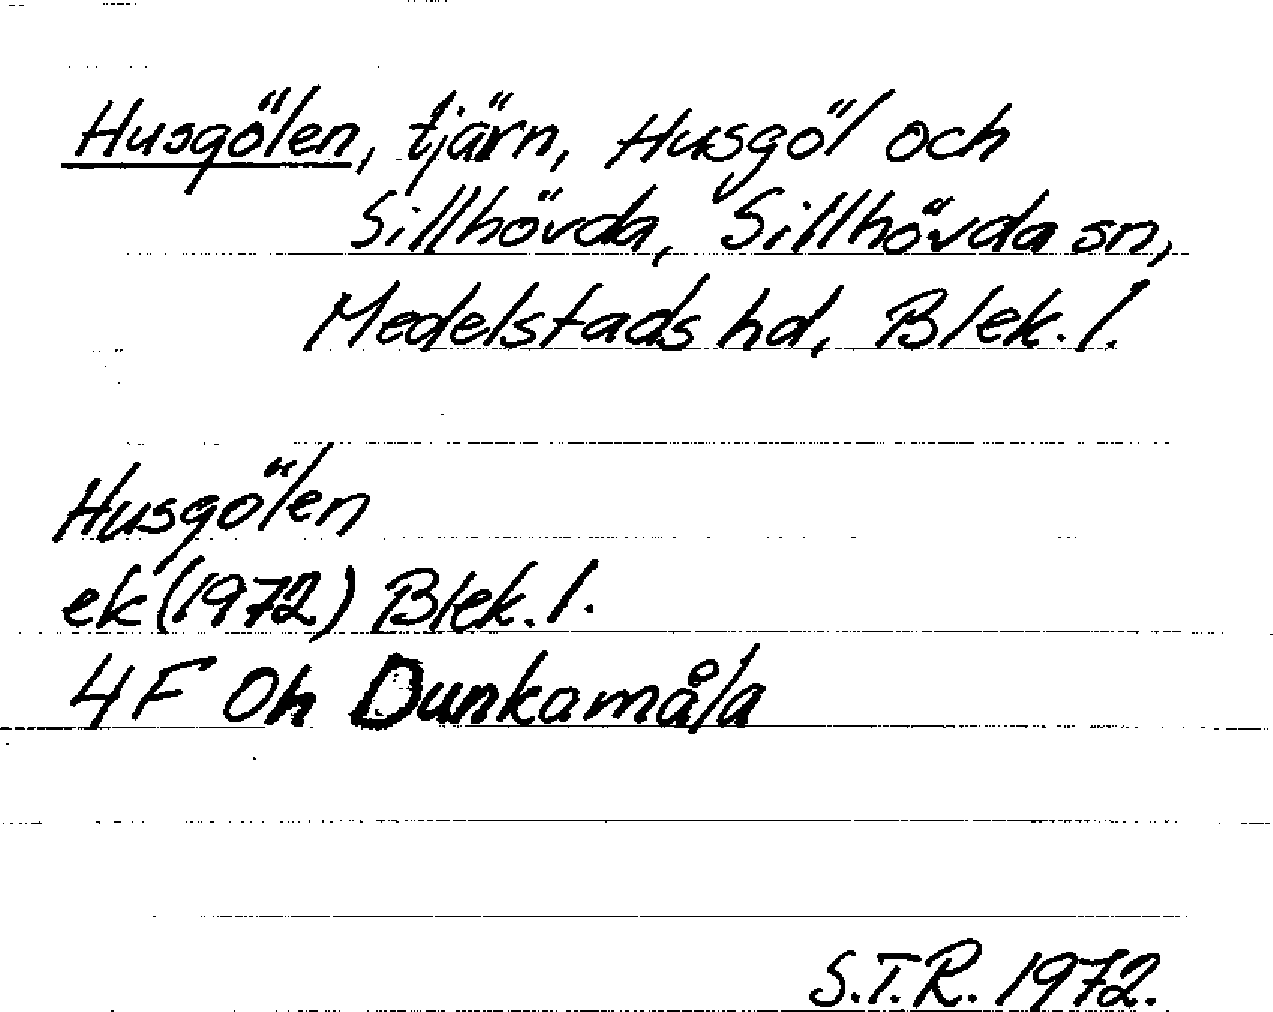 Husgölen, tjärn, Husgöl och
Sillhövda, Sillhövda sn,
Medelstads hd, Blek. l.
Husgölen
ek (1972) Blek. l.
4F 0h Dunkamåla
S.T.R. 1972.